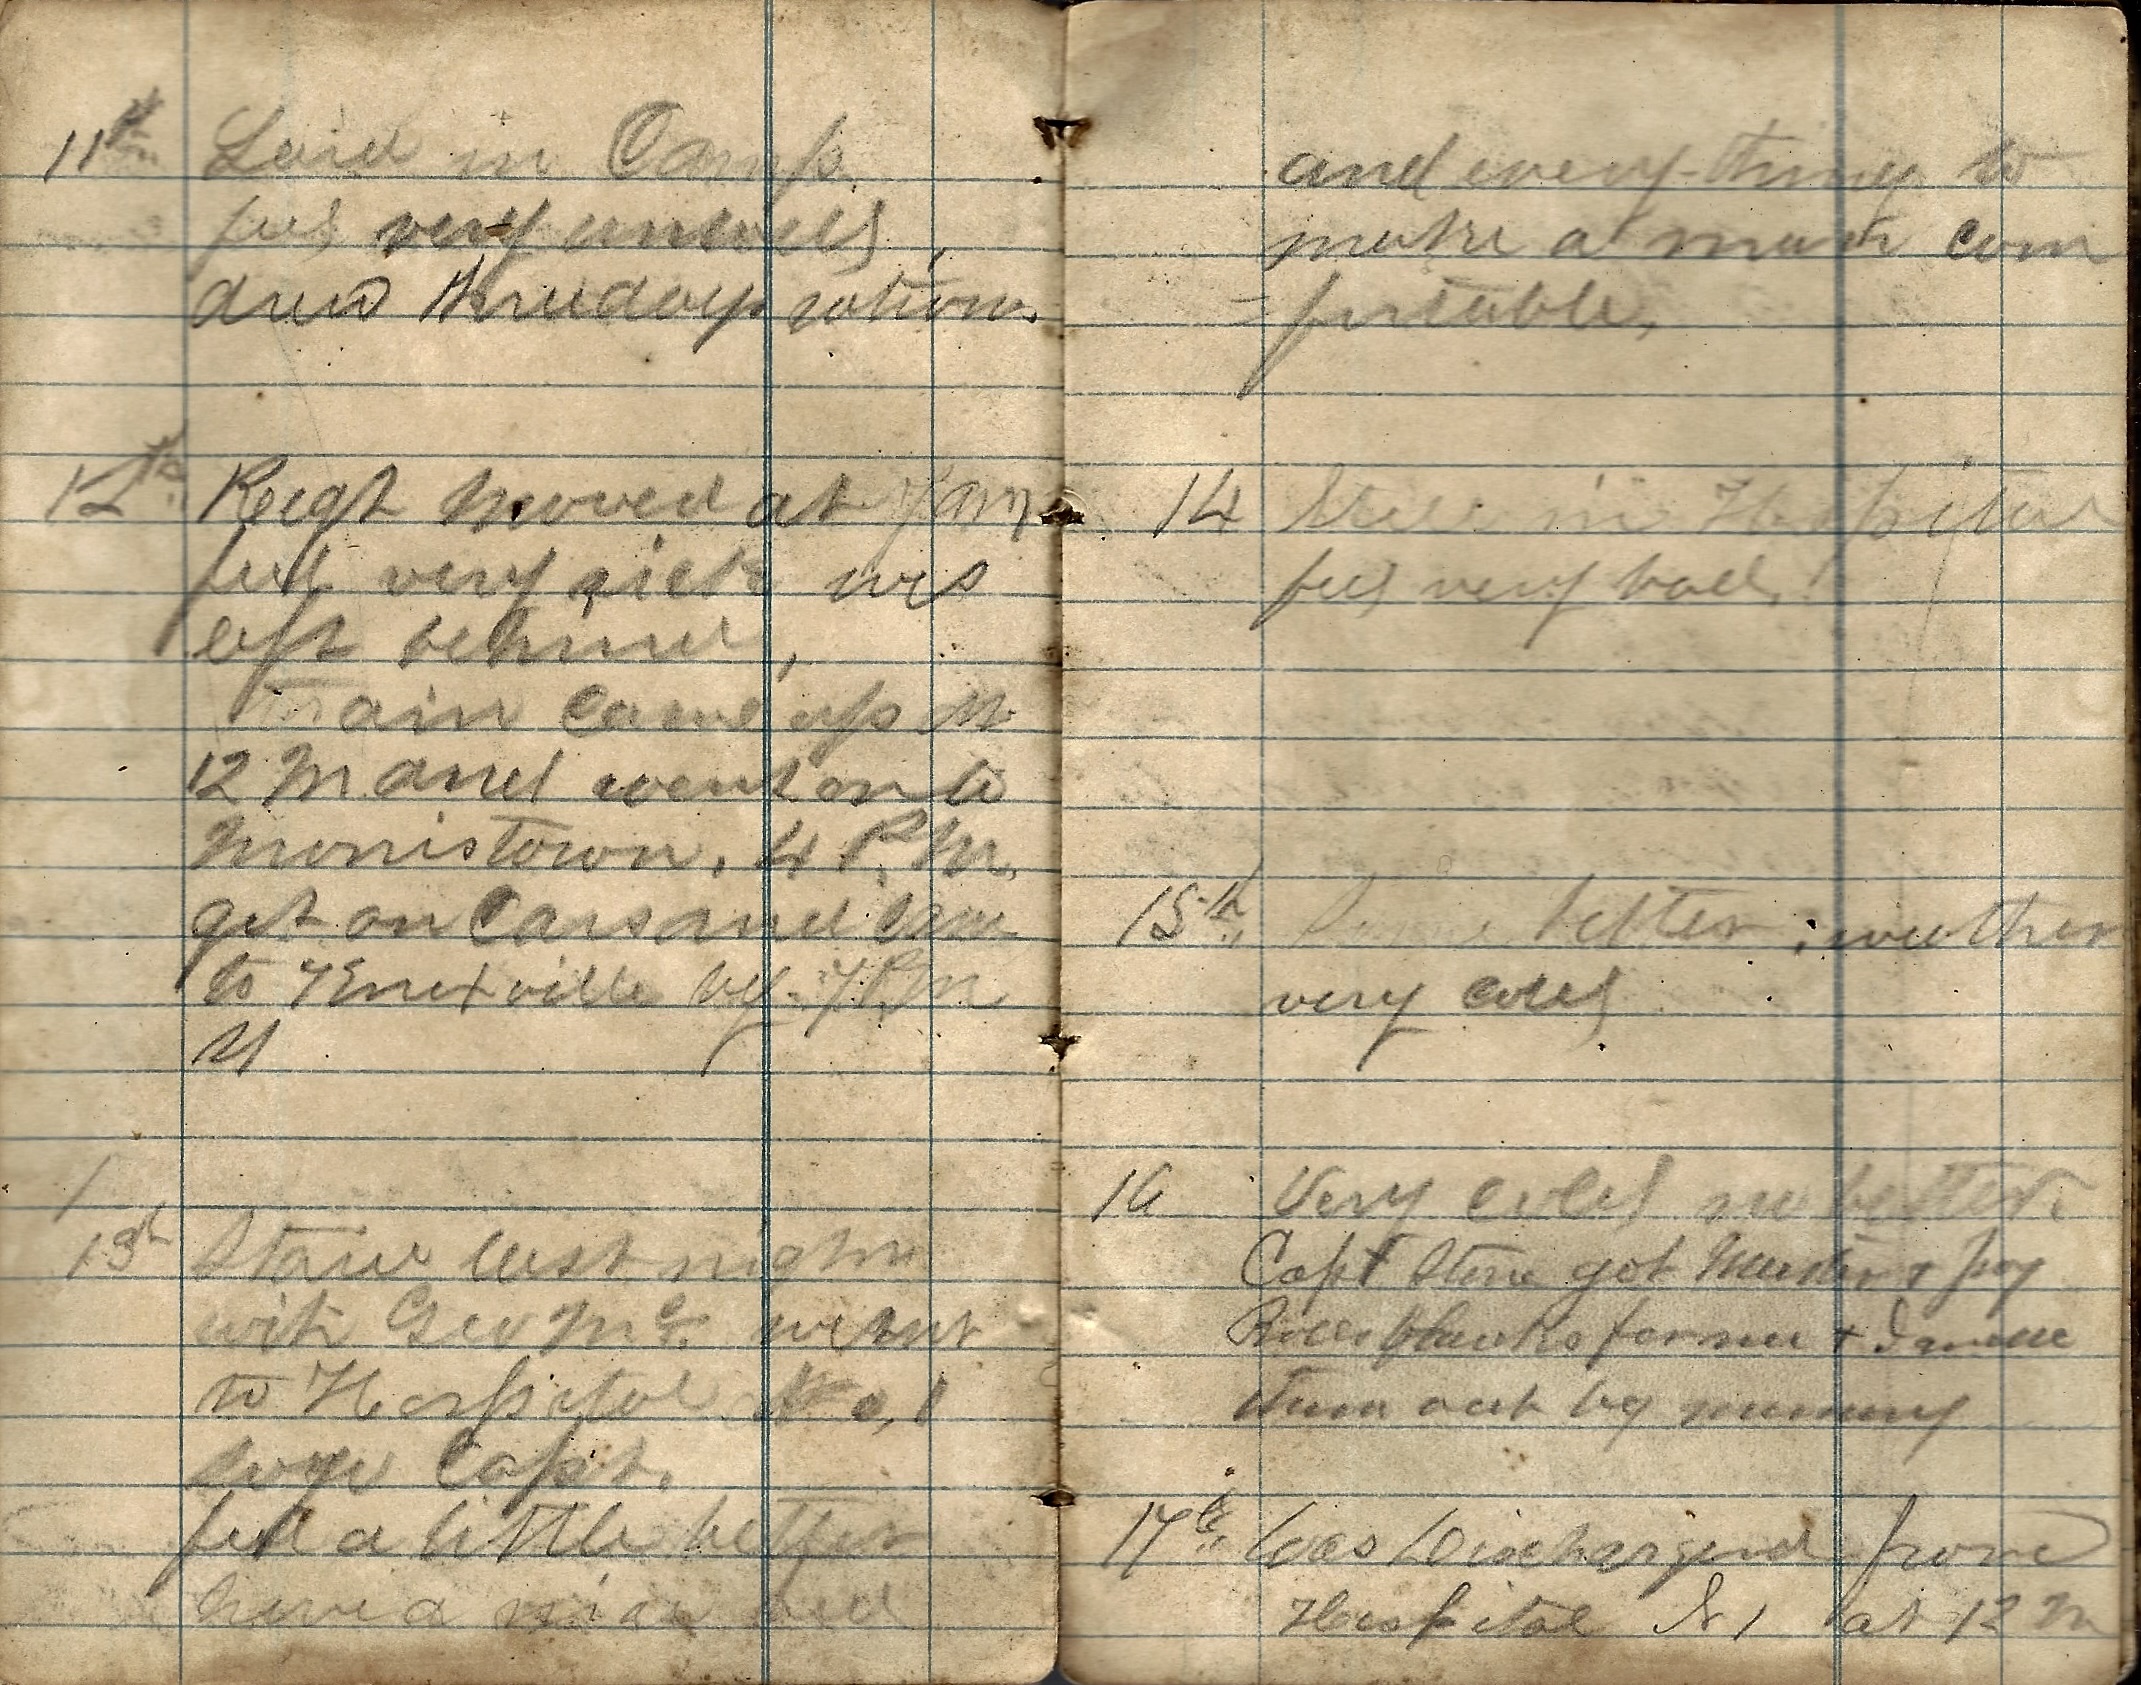 11th Laid in Camp.
feel very unwell,
drew three days rations.
12th Regt moved at 7 am
feel very sick was
left behind,
train came up at
12 M and went on to
Morristown. 4 P.M.
got on Cars and came
to Knoxville by 7 P.M.
13th Staid last night
with Geo Mc. went
to Hospital No, 1
Capt.
feel a little better
have a nice bed
and every-thing to
make a man com
=fortable,
14 Still in Hospital
feel very bad.
15th better; weather
very cold
16 Very cold no better
Capt Stone got Muster & pay
Rolls blanks &
out by
17th Was Discharged from
Hospital N 1 at 12 M